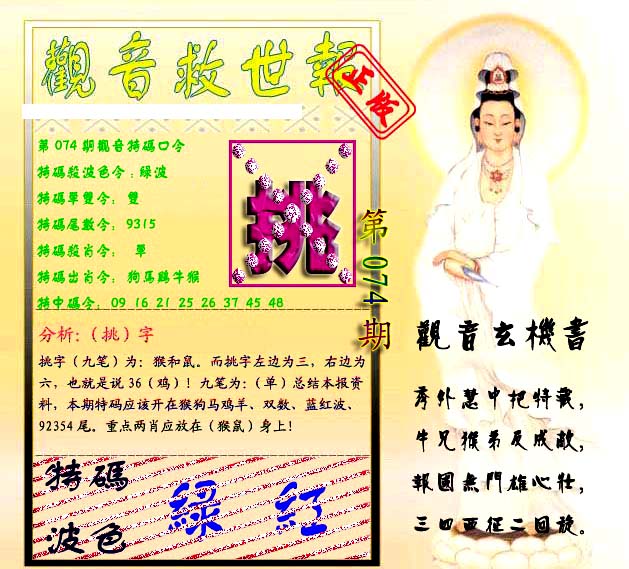 觀音救世報
正版
第 074 期觀音特碼口令
特碼殺波色令：綠波
特碼單雙令： 雙
特碼尾數令： 9315
特碼殺肖令： 單
特碼出肖令： 狗馬鷄牛猴
特中碼令： 09 16 21 25 26 37 45 48
挑
第 074 期
分析：（挑）字
挑字（九笔）为：猴和鼠。而挑字左边为三，右边为
六，也就是说 36（鸡）！九笔为：（单）总结本报资
料，本期特码应该开在猴狗马鸡羊、双数、蓝红波、
92354 尾。重点两肖应放在（猴鼠）身上！
特碼
波色
綠 紅
觀音玄機書
秀外慧中把特藏，
牛兄猴弟反成敵，
報國無門雄心壯，
三四西征二回旋。